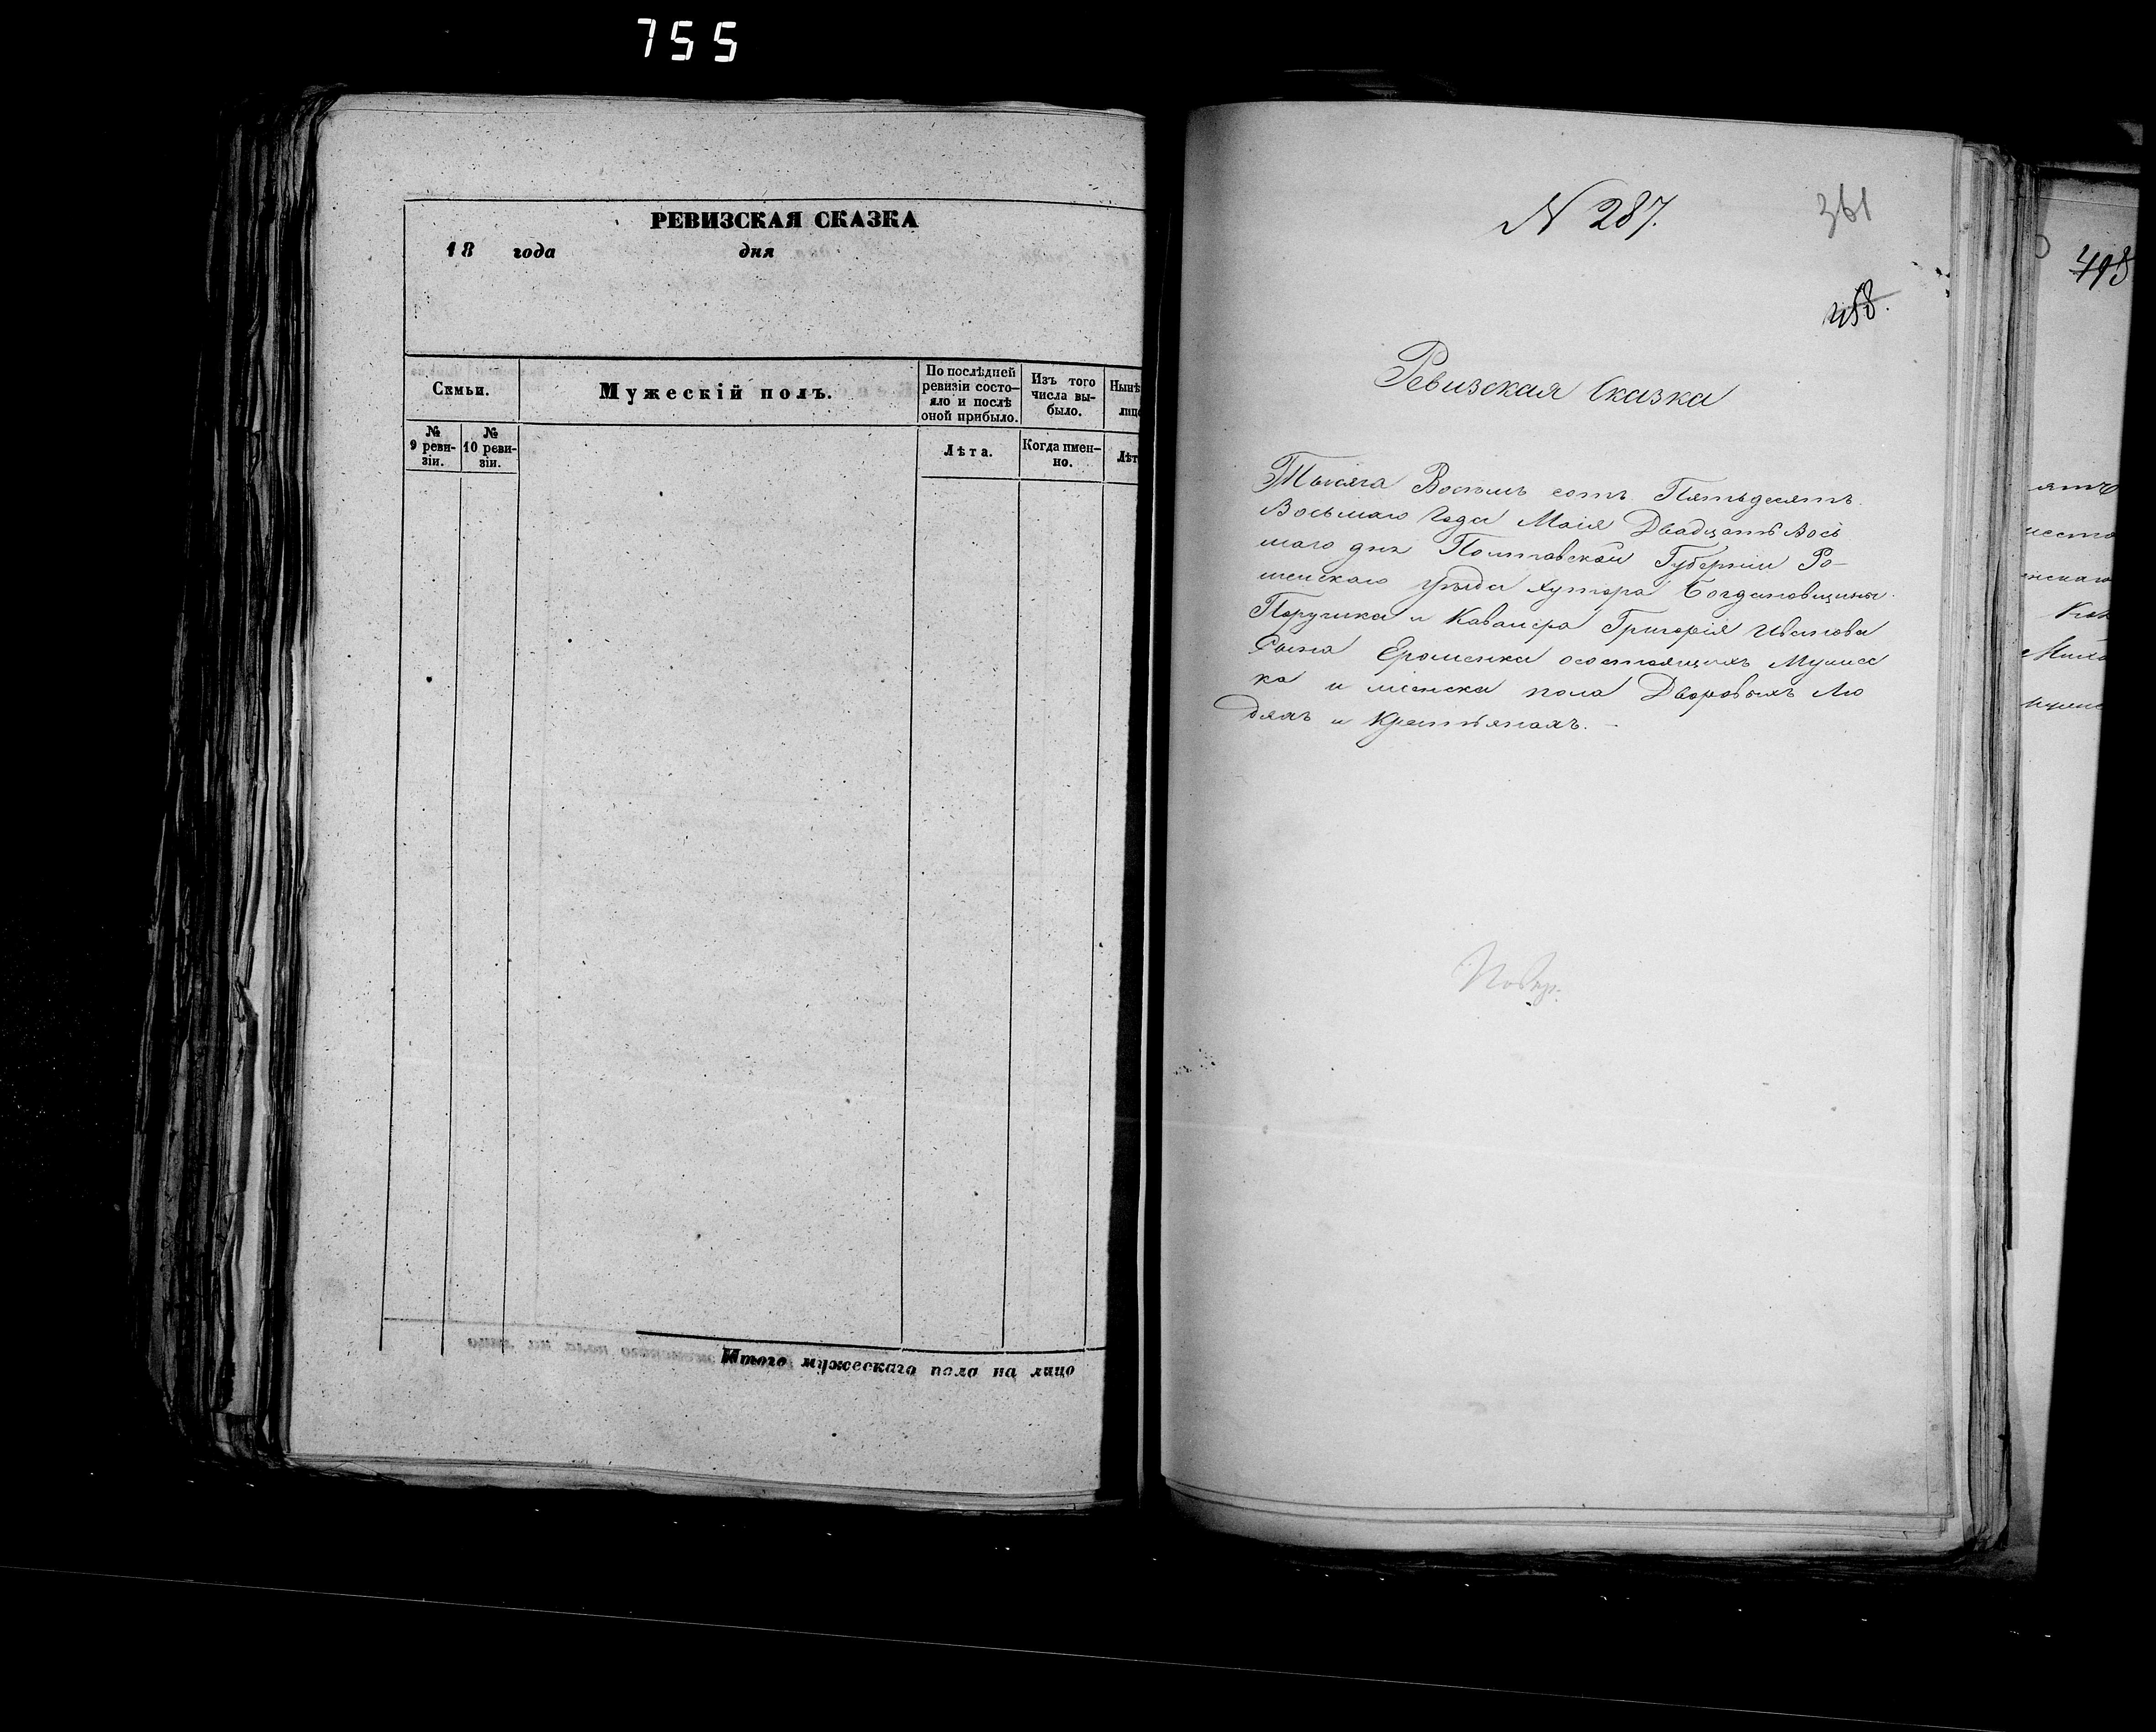 755
РЕВИЗСКАЯ СКАЗКА
18 года дня
Семьи.
Мужескій полъ.
По послѣдней
ревизіи состо-
яло и послѣ
оной прибыло.
Изъ того
числа вы-
было.
Нынѣ
лицо
№
9 реви-
зіи.
№
10 реви-
зіи.
Лѣта.
Когда имен-
но.
Лѣт
Итого мужескаго пола на лицо
N 287.
361
458.
Ревизская Сказка
Тысяча Восемь сотъ Пятьдесятъ
Восьмаго Года Маія Двадцать Вось
маго дня Полтавской Губерніи Ро-
менскаго уѣзда хутора Богдановщины
Поручика и Кавалера Григорія Иванова
Сына Ероменка осостоящихъ Мужес
ка и женска пола Дворовыхъ Лю
дяхъ и Крестьянахъ. -
Повѣр.
498
ятъ
нскаго
Михо